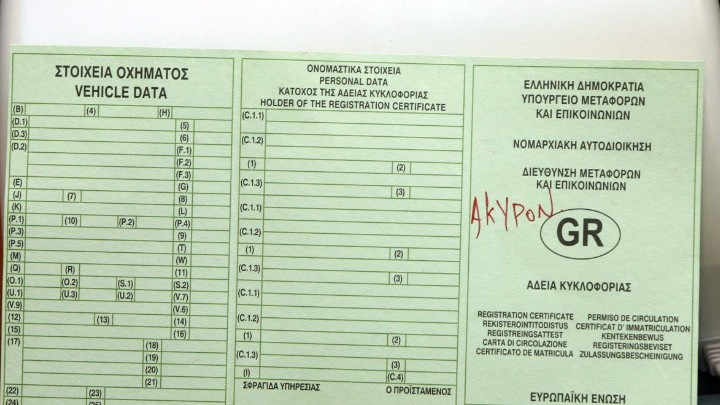 ΣΤΟΙΧΕΙΑ ΟΧΗΜΑΤΟΣ
VEHICLE DATA
(B) (4) (H)
(D.1) (5)
(D.3) (6)
(D.2) (F.1)
(F.2)
(F.3)
(E) (G)
(J) (7) (8)
(K) (L)
(P.1) (10) (P.2) (P.4)
(P.3) (9)
(P.5) (T)
(M) (W)
(Q) (R) (11)
(O.1) (O.2) (S.1) (S.2)
(U.1) (U.3) (U.2) (V.7)
(V.9) (V.6)
(12) (13) (14)
(15) (16)
(17) (18)
(19)
(20)
(21)
(22) (23)
(24)
ΟΝΟΜΑΣΤΙΚΑ ΣΤΟΙΧΕΙΑ
PERSONAL DATA
ΚΑΤΟΧΟΣ ΤΗΣ ΑΔΕΙΑΣ ΚΥΚΛΟΦΟΡΙΑΣ
HOLDER OF THE REGISTRATION CERTIFICATE
(C.1.1)
(C.1.2)
(1) (2)
(C.1.3) (3)
(C.1.1)
(C.1.2)
(1) (2)
(C.1.3) (3)
(C.1.1)
(C.1.2)
(1) (2)
(C.1.3) (3)
(I) (C.4)
ΣΦΡΑΓΙΔΑ ΥΠΗΡΕΣΙΑΣ Ο ΠΡΟΪΣΤΑΜΕΝΟΣ
ΕΛΛΗΝΙΚΗ ΔΗΜΟΚΡΑΤΙΑ
ΥΠΟΥΡΓΕΙΟ ΜΕΤΑΦΟΡΩΝ
ΚΑΙ ΕΠΙΚΟΙΝΩΝΙΩΝ
ΝΟΜΑΡΧΙΑΚΗ ΑΥΤΟΔΙΟΙΚΗΣΗ
ΔΙΕΥΘΥΝΣΗ ΜΕΤΑΦΟΡΩΝ
ΚΑΙ ΕΠΙΚΟΙΝΩΝΙΩΝ
ΑΚΥΡΟΝ
GR
ΑΔΕΙΑ ΚΥΚΛΟΦΟΡΙΑΣ
REGISTRATION CERTIFICATE PERMISO DE CIRCULATION
REKISTEROINTITODISTUS CERTIFICAT D' IMMATRICULATION
REGISTREINGSATTEST KENTEKENBEWIJS
CARTA DI CIRCOLAZIONE REGISTERINGSBEVISET
CERTIFICATO DE MATRICULA ZULASSUNGSBESCHEINIGUNG
ΕΥΡΩΠΑΪΚΗ ΕΝΩΣΗ